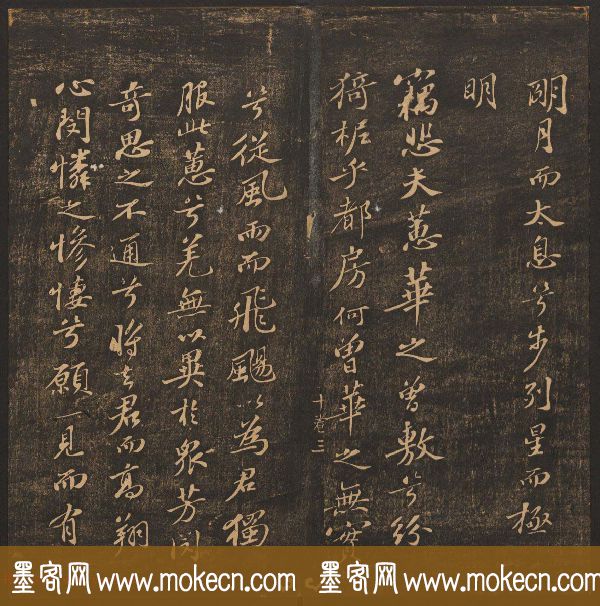 明月而太息兮步列星而極
明
竊悲夫蕙華之曾敷兮紛
猗柅乎都房何曾華之無實
十卷三
兮從風雨而飛颺以為君獨
服此蕙兮羌無以異於眾芳閔
奇思之不通兮將去君而高翔
心閔憐之慘悽兮願一見而有
墨客网 www.mokecn.com 墨客网 www.mokecn.com